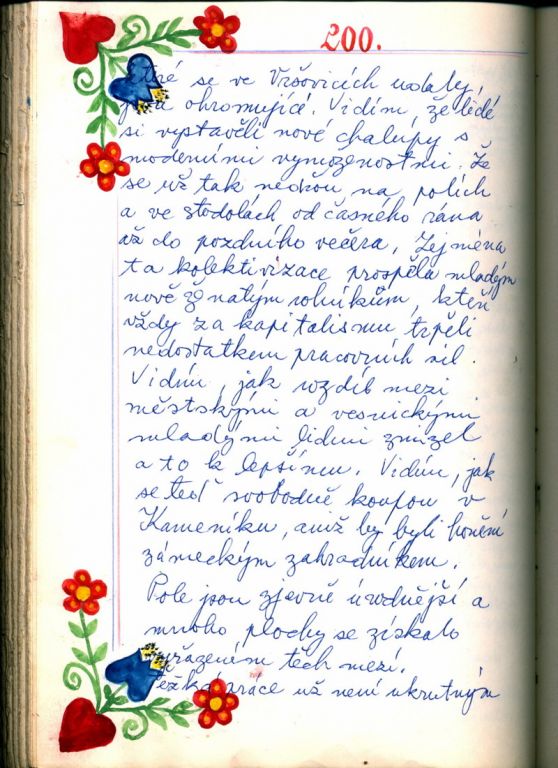 200.
které se ve Vršovicích udály,
jsou ohromující. Vidím, že lidé
si vystavěli nové chalupy s
moderními vymoženostmi. Že
se už tak nedřou na polích
a ve stodolách od časného rána
až do pozdního večera. Zejména
ta kolektivizace prospěla mladým
nově ženatým rolníkům, kteří
vždy za kapitalismu trpěli
nedostatkem pracovních sil.
Vidím, jak rozdíl mezi
městskými a vesnickými
mladými lidmi zmizel
a to k lepšímu. Vidím, jak
se teď svobodně koupou v
Kameníku, aniž by byli honěni
zámeckým zahradníkem.
Pole jsou zjevně úrodnější a
mnoho plochy se získalo
vyřazením těch mezí.
Těžká práce už není ukrutným